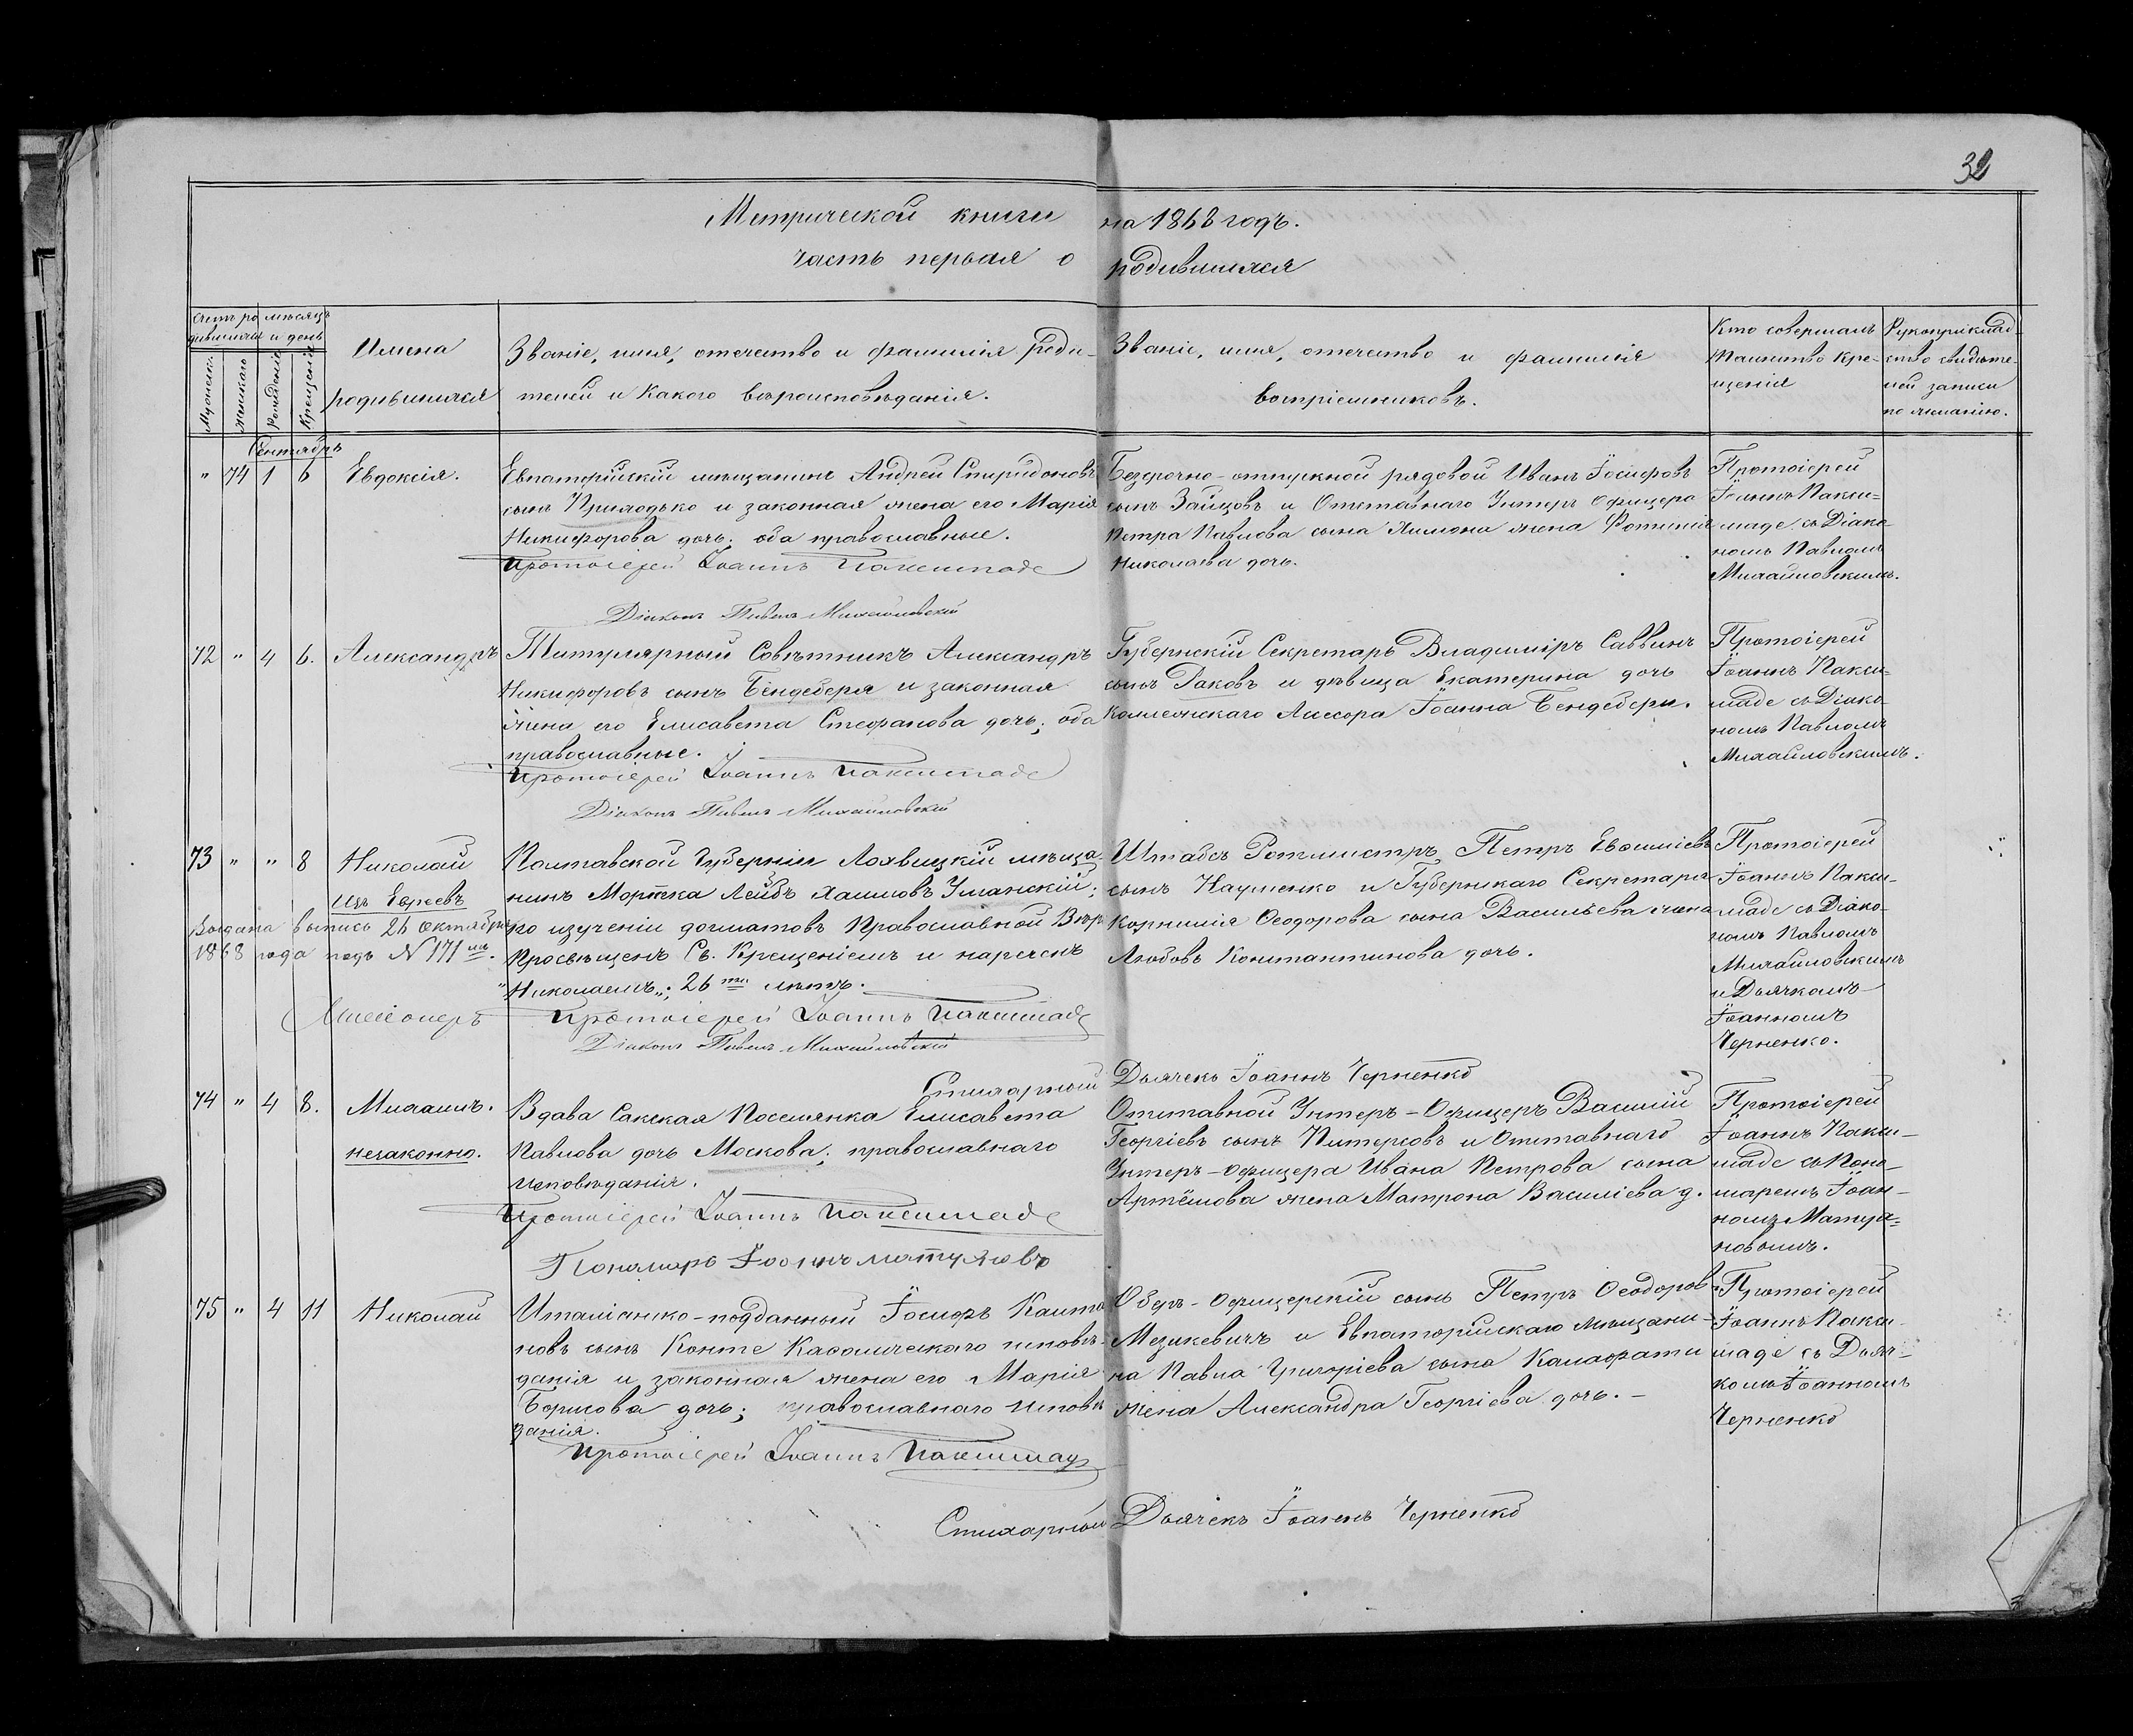 32
Метрической книги на 1868 годъ.
часть первая о родившихся
Счетъ ро
дившихся
мѣсяцъ
и день
Мужеска.
женскаго
рожденія
Крещенія
Имена
родившихся
Званіе, имя, отечество и фамилія роди-
телей и какого вѣроисповѣданія.
Званіе, имя, отечество и фамилія
воспріемниковъ.
Кто совершалъ
таинство кре-
щенія
Рукоприклад-
ство свидѣте-
лей записи
по желанію.
Сентябрь
" 74 1 6 Евдоксія.
Евпаторійскій мѣщанинъ Андрей Спиридоновъ
сынъ Приходько и законная жена его Марія
Никифорова дочь; оба православные.
Протоіерей Іоаннъ Паксимаде
Діаконъ Павелъ Михайловскій
Безсрочно-отпускной рядовой Иванъ Іосифовъ
сынъ Зайцовъ и Отставнаго Унтеръ офицера
Петра Павлова сына Химона жена Фотинія
Николаева дочь.
Протоіерей
Іоаннъ Пакси-
маде съ Діако-
номъ Павломъ
Михайловскимъ.
72 " 4 6. Александръ
Титулярный Совѣтникъ Александръ
Никифоровъ сынъ Бендебери и законная
жена его Елисавета Стефанова дочь; оба
православные.
Протоіерей Іоаннъ Паксимаде
Діаконъ Павелъ Михайловскій
Губернскій Секретарь Владиміръ Саввинъ
сынъ Раковъ и дѣвица Екатерина дочь
Коллежскаго Ассесора Іоанна Бендебери.
Протоіерей
Іоаннъ Пакси-
маде съ Діако-
номъ Павломъ
Михайловскимъ.
73 " " 8 Николай
изъ Евреевъ
Выдана выпись 26 октября
1868 года подъ N 171мъ.
Полтавской Губерніи Лохвицкій мѣща-
нинъ Мортка Лейбъ Хаимовъ Уманскій;
по изученіи догматовъ Православной Вѣры
просвѣщенъ Св. Крещеніемъ и нареченъ
"Николаемъ"; 26ти лѣтъ.
Миссіонеръ Протоіерей Іоаннъ Паксимаде
Діаконъ Павелъ Михайловскій
Стихарный Дьячекъ Іоаннъ Черненко
Штабсъ Ротмистръ Петръ Евфиміевъ
сынъ Науменко и Губернскаго Секретаря
Корнилія Ѳеодорова сына Васильева жена
Любовь Константинова дочь.
Протоіерей
Іоаннъ Пакси-
маде съ Діако-
номъ Павломъ
Михайловскимъ
и Дьячкомъ
Іоанномъ
Черненко.
74 " 4 8. Михаилъ.
незаконно.
Вдава Сакская Поселянка Елисавета
Павлова дочь Москова; православнаго
исповѣданія.
Протоіерей Іоаннъ Паксимаде
Пономарь Іоаннъ Матуяновъ
Отставной Унтеръ-Офицеръ Василій
Георгіевъ сынъ Питерсовъ и Отставнаго
Унтеръ-офицера Ивана Петрова сына
Артёмова жена Матрона Василіева д.
Протоіерей
Іоаннъ Пакси-
маде съ Поно-
маремъ Іоан-
номъ Матуя-
новымъ.
75 " 4 11 Николай
Италіанско-подданный Іосифъ Каита
новъ сынъ Конте Каѳолическаго исповѣ-
данія и законная жена его Марія
Борисова дочь; православнаго исповѣ
данія.
Протоіерей Іоаннъ Паксимаде
Стихарный Дьячекъ Іоаннъ Черненко
Оберъ-Офицерскій сынъ Петръ Ѳеодоровъ
Мезикевичъ и Евпаторійскаго мѣщани-
на Павла Григоріева сына Калафати
жена Александра Георгіева дочь.-
Протоіерей
Іоаннъ Пакси-
маде съ Дьяч-
комъ Іоанномъ
Черненко